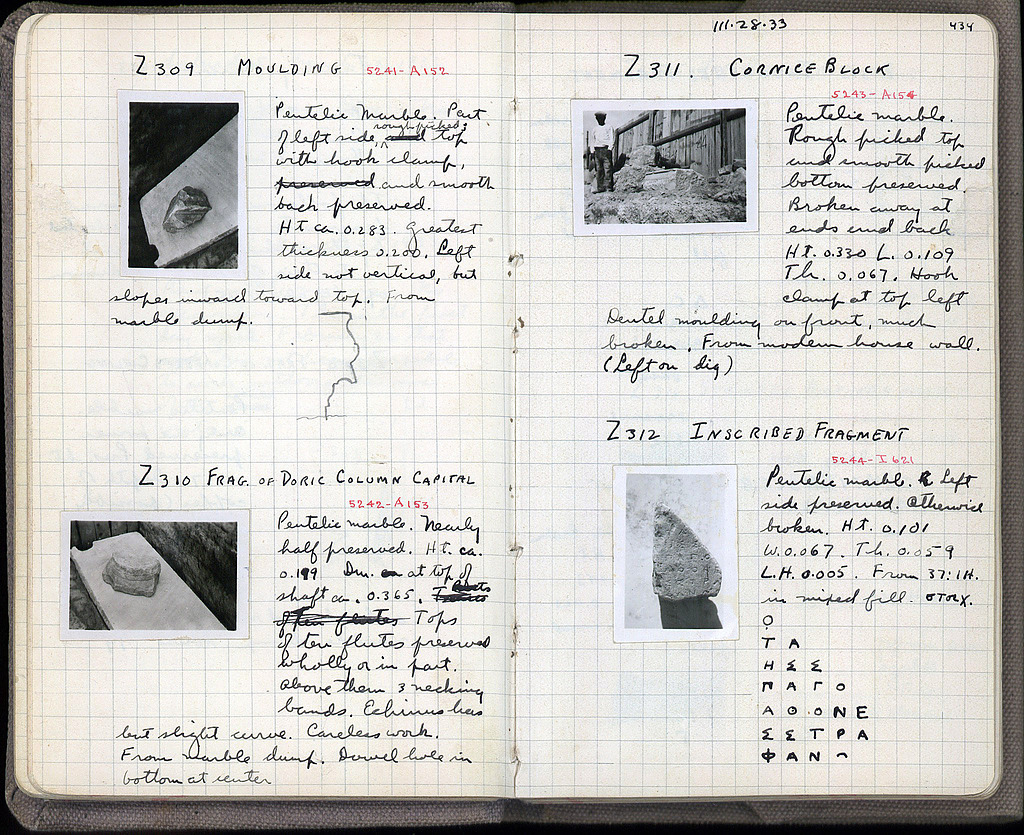 Z309 MOULDING 5241-A152
Pentelic Marble. Part
of left side, rough picked top
with hook clamp,
preserved and smooth
back preserved.
Ht ca. 0.283. Greatest
thickness 0.200. Left
side not vertical, but
slopes inward toward top. From
marble dump.
Z310 FRAG. OF DORIC COLUMN CAPITAL
5242-A153
Pentelic marble. Nearly
half preserved. Ht. ca.
0.199 Dm. at top of
shaft ca. 0.365.
of ten flutes Tops
of ten flutes preserved
wholly or in part.
Above them 3 necking
bands. Echinus has
but slight curve. Careless work.
From marble dump. Dowel hole in
bottom at center
111·28·33
434
Z311. CORNICE BLOCK
5243-A154
Pentelic marble.
Rough picked top
and smooth picked
bottom preserved.
Broken away at
ends and back
Ht. 0.330 L. 0.109
Th. 0.067. Hook
clamp at top left
Dentel moulding on front, much
broken. From modern house wall.
(Left on dig)
Z312 INSCRIBED FRAGMENT
5244-I621
Pentelic marble. Left
side preserved. Otherwise
broken. Ht. 0.101
W. 0.067. Th. 0.059
L.H. 0.005. From 37:1H.
in mixed fill.
Ο
Τ Α
Η Σ Σ
Π Α Γ Ο
Α Θ Ο Ν Ε
Σ Σ Τ Ρ Α
Φ Α Ν